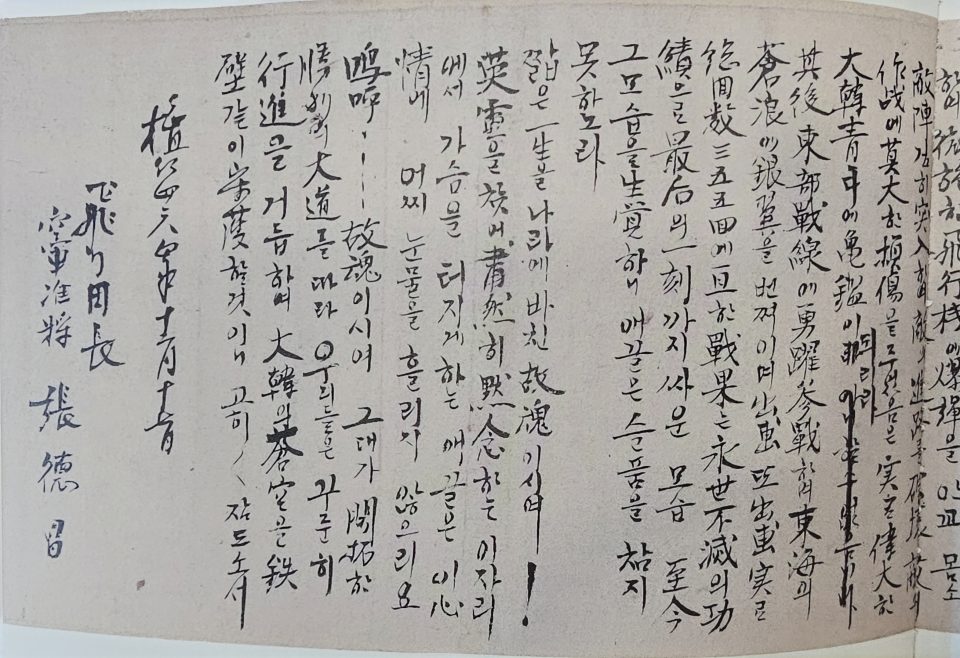 하며 飛行機에 爆彈을 안고 몸소
敵陣깊히 突入하여 敵의 進路를 破壞 敵의
作战에 莫大한 損傷을 주었음은 実로 偉大한
大韓青年에 亀鑑이 되리라
其後 東部戰線에 勇躍參戰하여 東海의
蒼浪에 銀翼을 번쩍이며 出擊 또 出擊 実로
総回数 三五五回에 亘한 戰果는 永世不滅의 功
績으로 最后의 一刻까지 싸운 모습 至今
그 모습을 生覚하니 애끓은 슬픔을 참지
못하노라
짧은 一生을 나라에 바친 故魂이시여!
英靈을 찾어 肅然히 默念하는 이자리
에서 가슴을 터지게하는 애끓은 이 心
情에 어찌 눈물을 흘리지 않으리요
嗚呼..... 故魂이시여 그대가 開拓한
勝利의 大道를 따라 우리들은 꾸준히
行進을 거듭하여 大韓의 蒼空을 鉄
壁같이 守護할것이니 고히〱 잠드소서
檀紀
飛行団長
空軍准將 張德昌